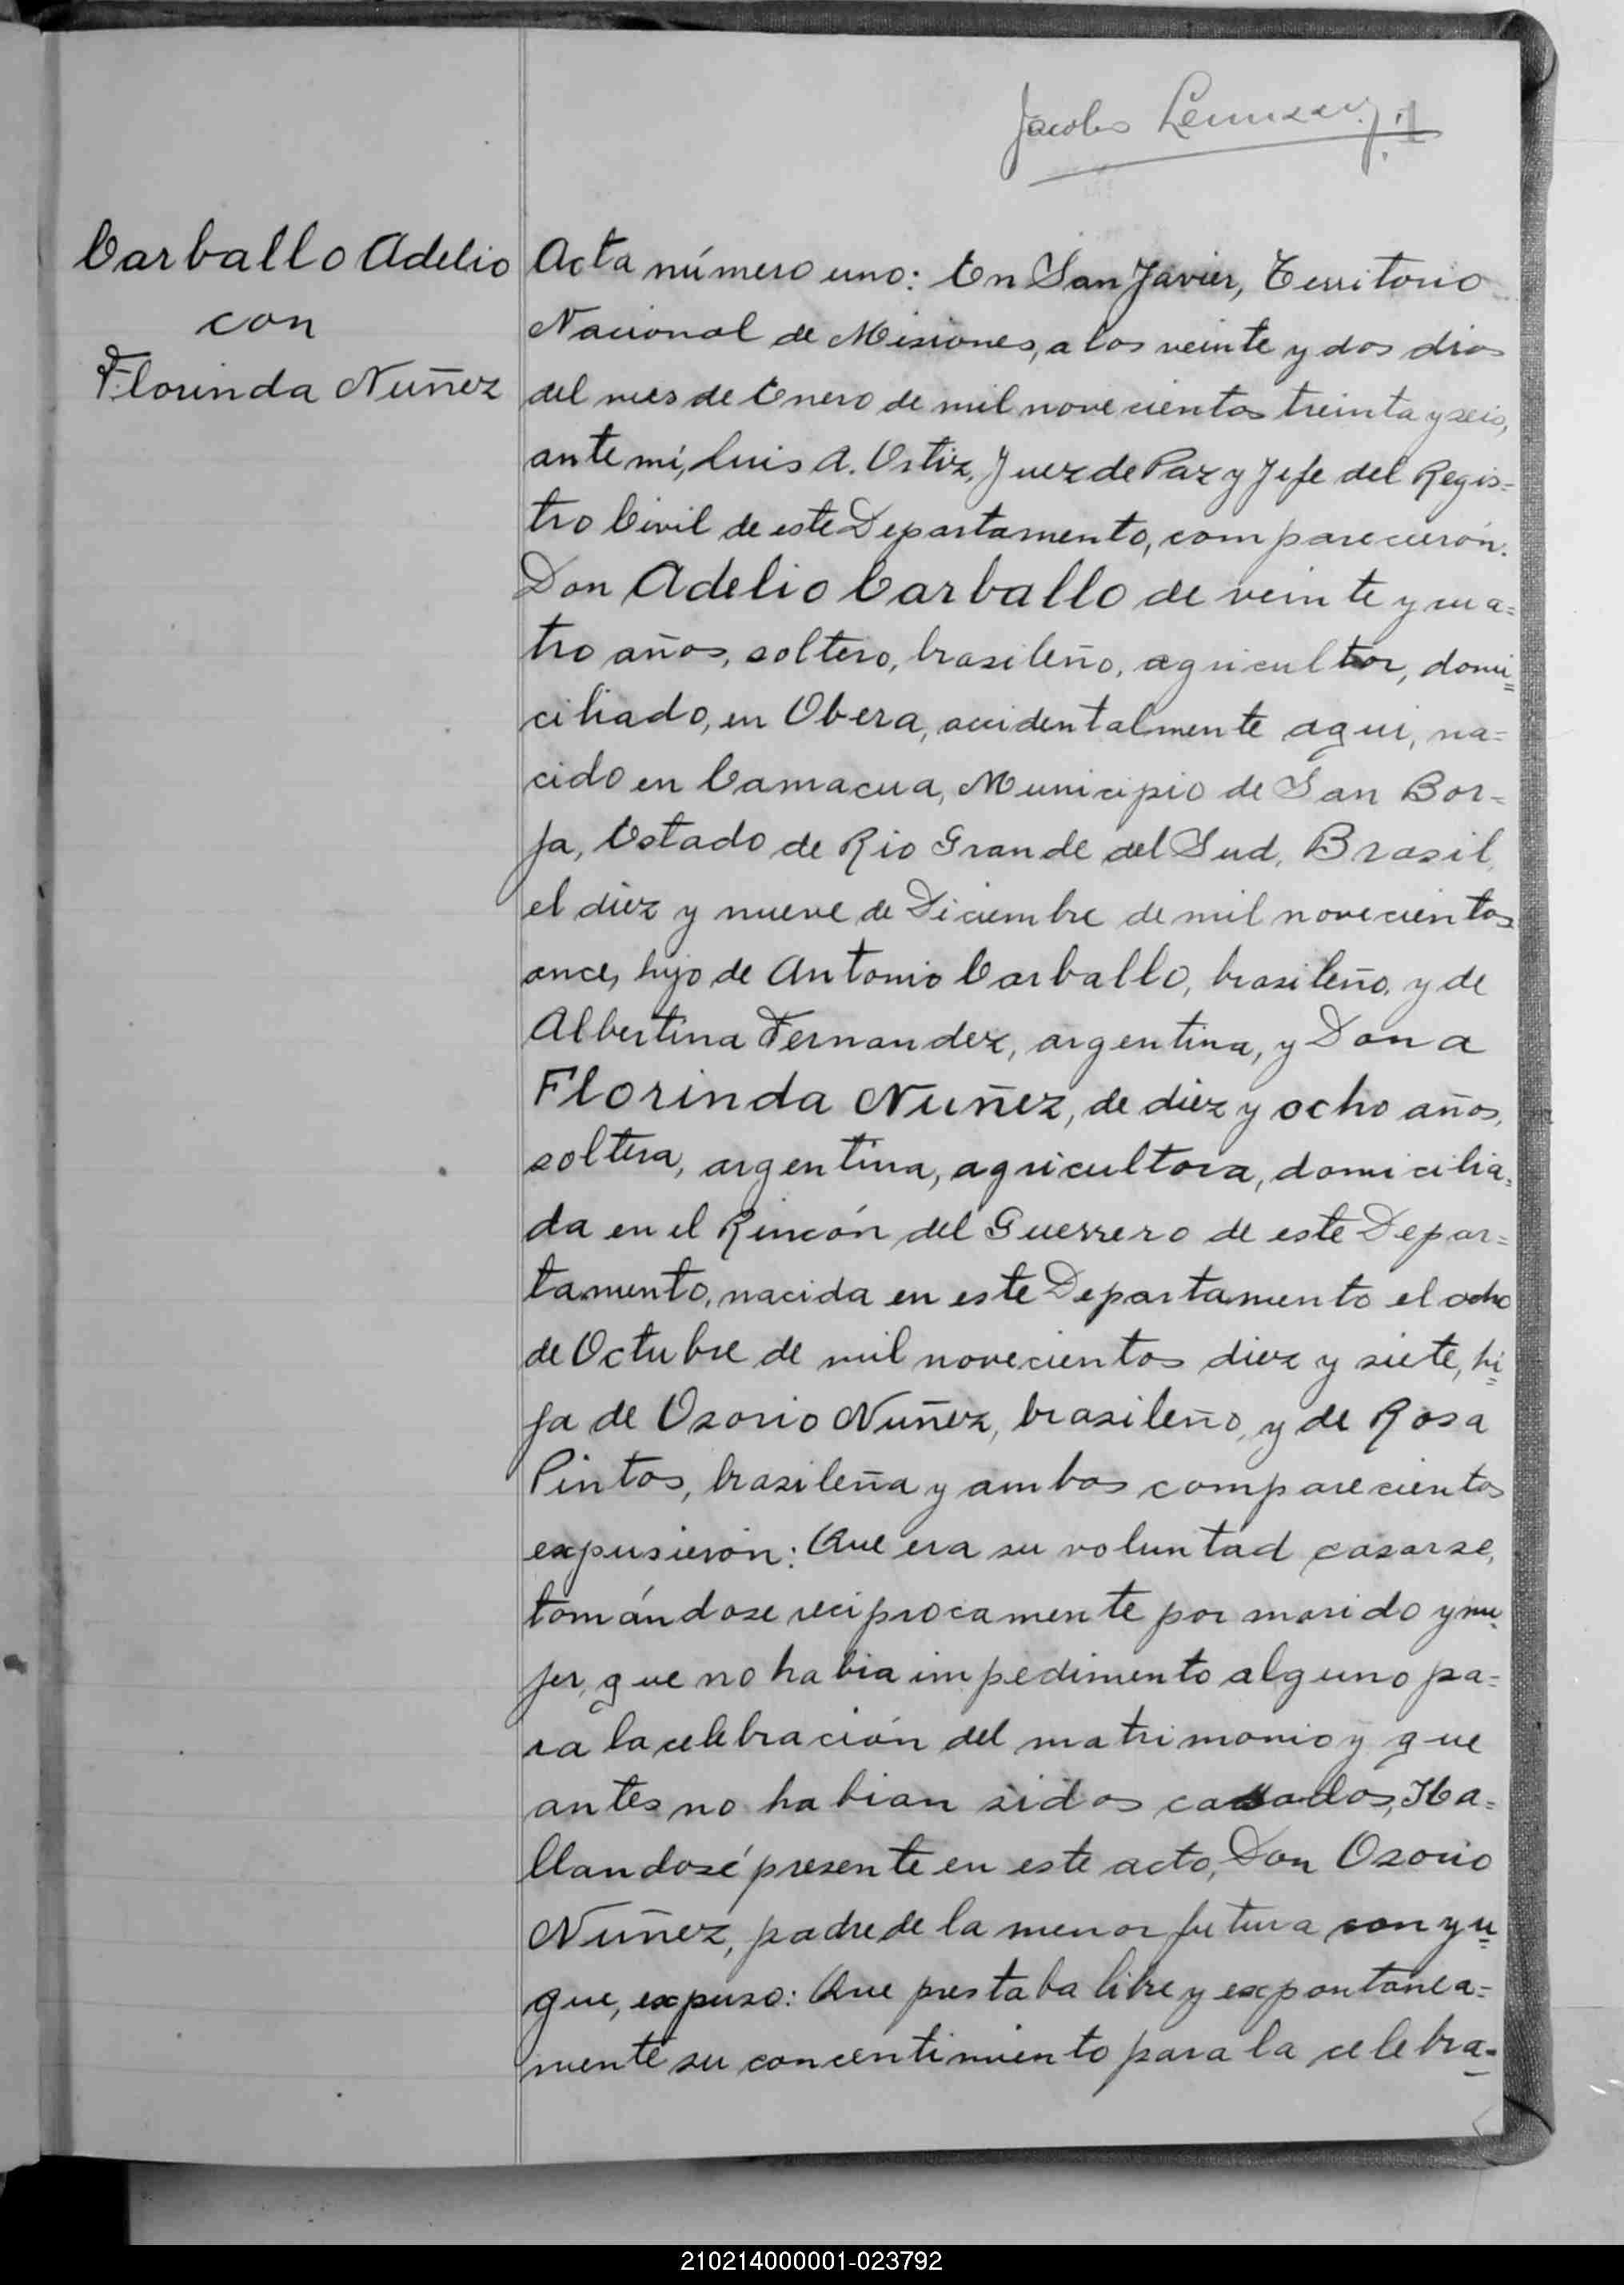 Jacobo
Carballo Adelio
con
Florinda Nuñez
Acta número uno: En San Javier, Territorio
Nacional de Misiones, a los veinte y dos dias
del mes de Enero de mil novecientos treinta y seis,
ante mi, Luis A. Ortiz, Juez de Paz y Jefe del Regis=
tro Civil de este Departamento, comparecieron.
Don Adelio Carballo de veinte y cua=
tro años, soltero, brasileño, agricultor, domi=
ciliado, en Obera, accidentalmente aqui, na=
cido en Camacua, Municipio de San Bor=
ja, Estado de Rio Grande del Sud, Brasil,
el diez y nueve de Diciembre de mil novecientos
once, hijo de Antonio Carballo, brasileño, y de
Albertina Fernandez, argentina, y Dona
Florinda Nuñez, de diez y ocho años,
soltera, argentina, agricultora, domicilia=
da en el Rincón del Guerrero de este Depar=
tamento, nacida en este Departamento el ocho
de Octubre de mil novecientos diez y siete, hi=
ja de Osorio Nuñez, brasileño, y de Rosa
Pintos, brasileña y ambos comparecientos
expusierón: Que era su voluntad casarse,
tomándose reciprocamente por marido y mu=
jer, que no habia impedimento alguno pa=
ra la celebración del matrimonio y que
antes no habian sidos casados, Ha=
llandosé presente en este acto, Don Osorio
Nuñez, padre de la menor futura conyu=
gue, expuso: Que prestaba libre y expontanea=
mente su concentimiento para la celebra=
210214000001-023792